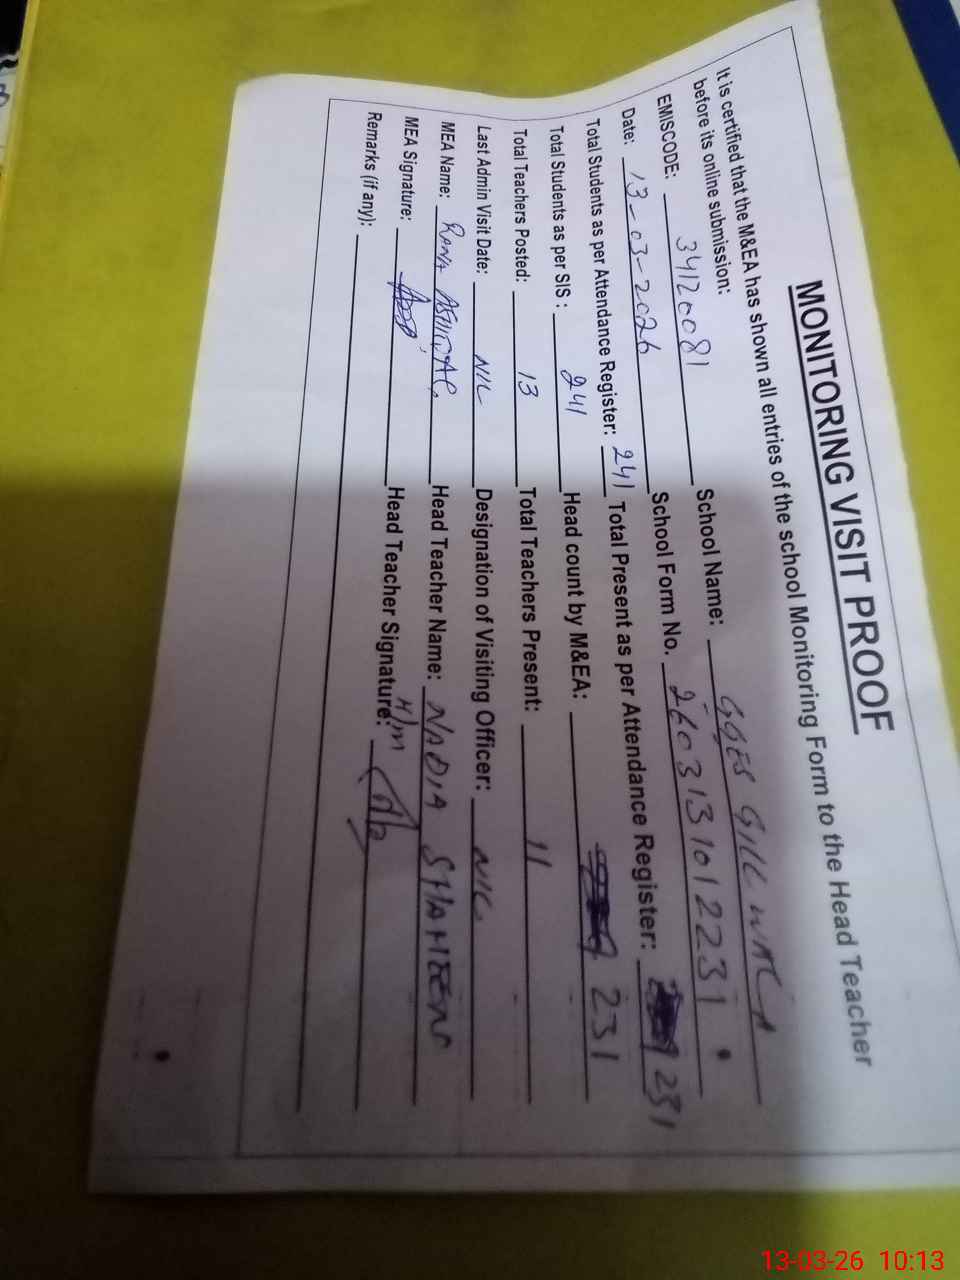 MONITORING VISIT PROOF
It is certified that the M&EA has shown all entries of the school Monitoring Form to the Head Teacher
before its online submission:
EMISCODE: 34120081 School Name: GGES GILL WALA
Date: 13-03-2026 School Form No. 2603131012231
Total Students as per Attendance Register: 241 Total Present as per Attendance Register: 231
Total Students as per SIS : 241 Head count by M&EA: 231
Total Teachers Posted: 13 Total Teachers Present: 11
Last Admin Visit Date: NIL Designation of Visiting Officer: NIL
MEA Name: RANA Head Teacher Name: NADIA SHAHEEN
MEA Signature: Head Teacher Signature: H/M
Remarks (if any):
13-03-26 10:13